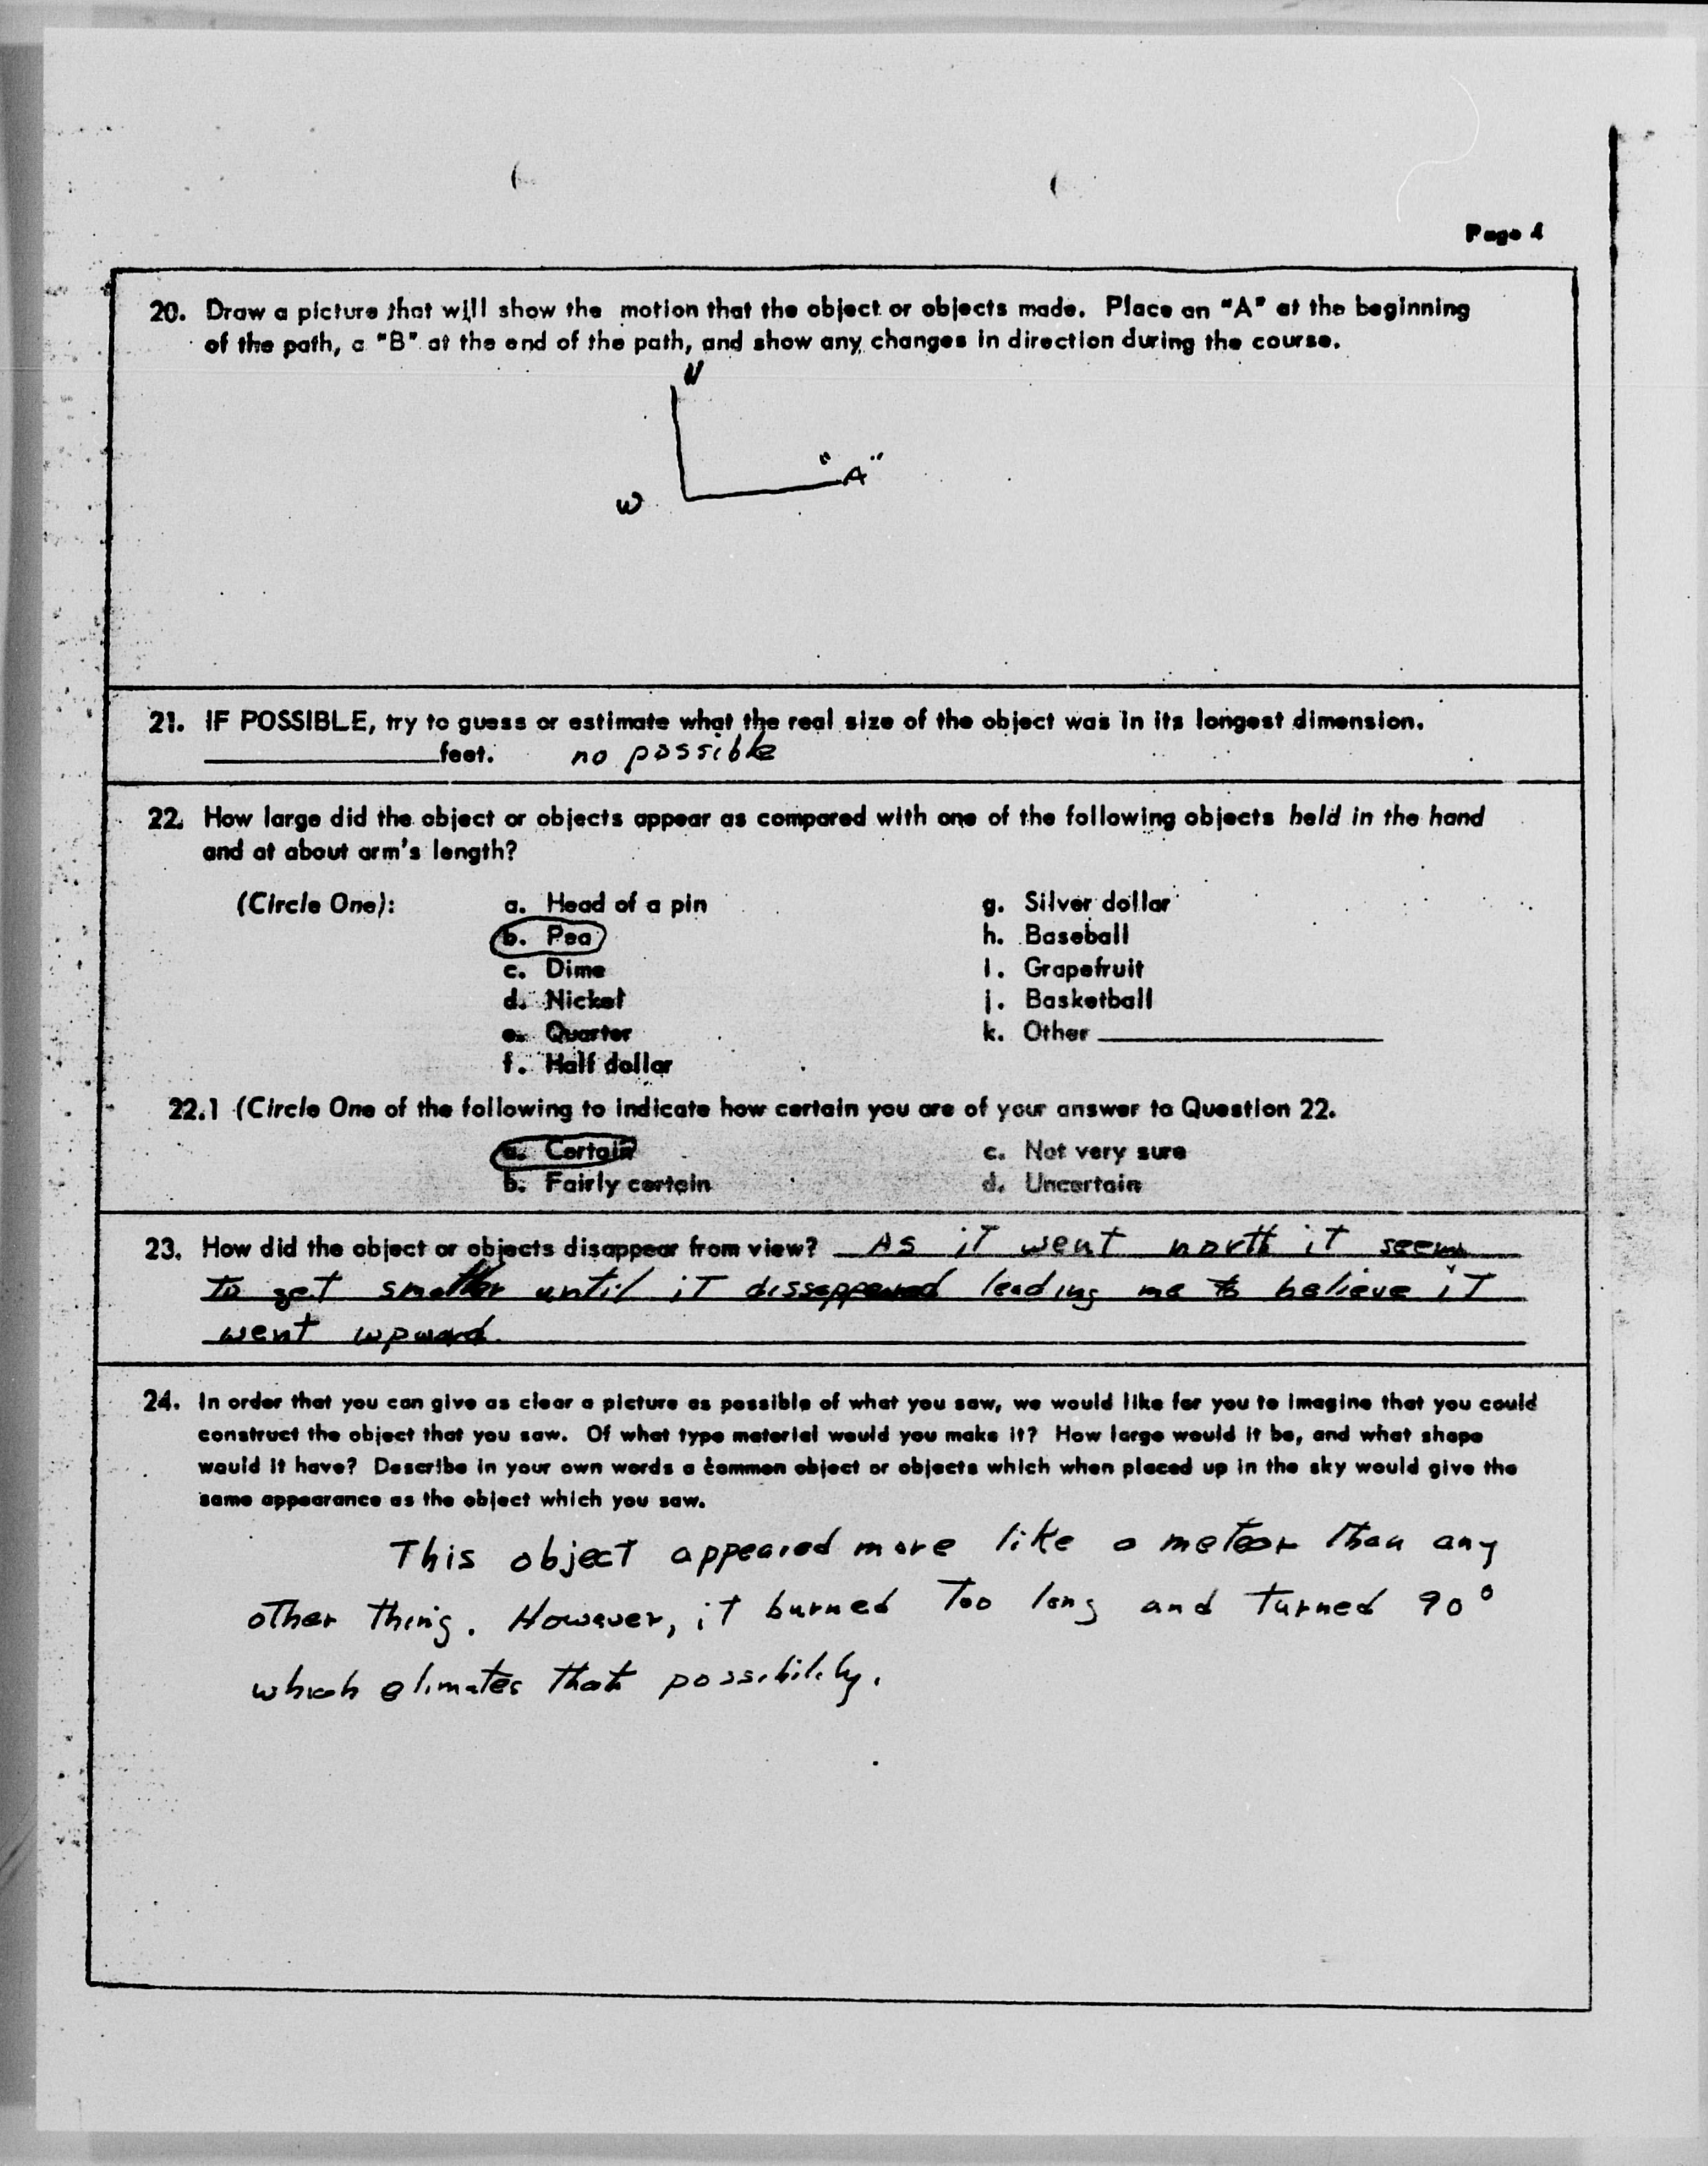 Page 4
20. Draw a picture that will show the motion that the object or objects made. Place an "A" at the beginning
of the path, a "B" at the end of the path, and show any changes in direction during the course.
N
"A"
W
21. IF POSSIBLE, try to guess or estimate what the real size of the object was in its longest dimension.
____________feet. no possible
22. How large did the object or objects appear as compared with one of the following objects held in the hand
and at about arm's length?
(Circle One): a. Head of a pin g. Silver dollar
b. Pea h. Baseball
c. Dime i. Grapefruit
d. Nickel j. Basketball
e. Quarter k. Other ____________
f. Half dollar
22.1 (Circle One of the following to indicate how certain you are of your answer to Question 22.
a. Certain c. Not very sure
b. Fairly certain d. Uncertain
23. How did the object or objects disappear from view? As it went north it seems
to get smaller until it disseppeared leading me to believe it
went upward.
24. In order that you can give as clear a picture as possible of what you saw, we would like for you to imagine that you could
construct the object that you saw. Of what type material would you make it? How large would it be, and what shape
would it have? Describe in your own words a common object or objects which when placed up in the sky would give the
same appearance as the object which you saw.
This object appeared more like a meteor than any
other thing. However, it burned too long and turned 90°
which elimates that possibility.